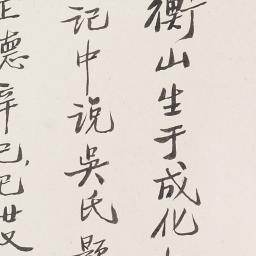 衡山生于成化
记中说吴氏题
正德辛巳,已廿又